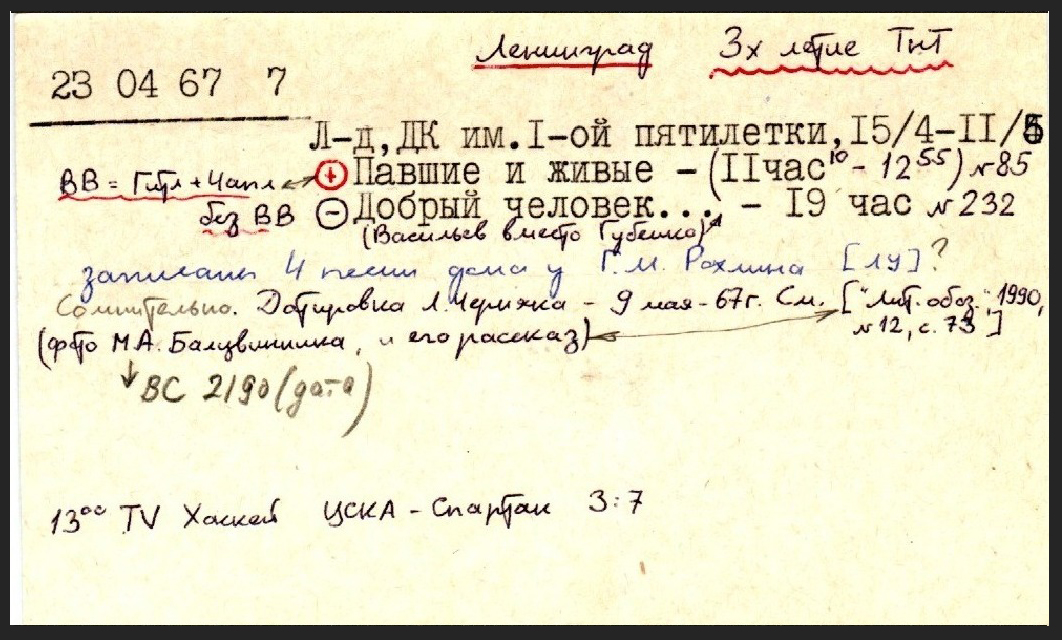 Ленинград 3х летие ТнТ
23 04 67 7
Л-д, ДК им.I-ой пятилетки, I5/4-II/5
ВВ = Гитл + Чапл ⊕ Павшие и живые - (IIчас¹⁰ - 12⁵⁵) №85
без ВВ ⊖ Добрый человек... - I9 час №232
(Васильев вместо Губенко)
записаны 4 песни дома у Г.М. Рохлина [ЛУ]?
Сомнительно. Датировка Л. Черняка - 9 мая - 67г. См. ["Лит. обоз.", 1990,
№12, с. 73]
(фото М.А. Балцвиника, и его рассказ)
ВС 2190 (дата)
13⁰⁰ TV Хоккей ЦСКА - Спартак 3:7